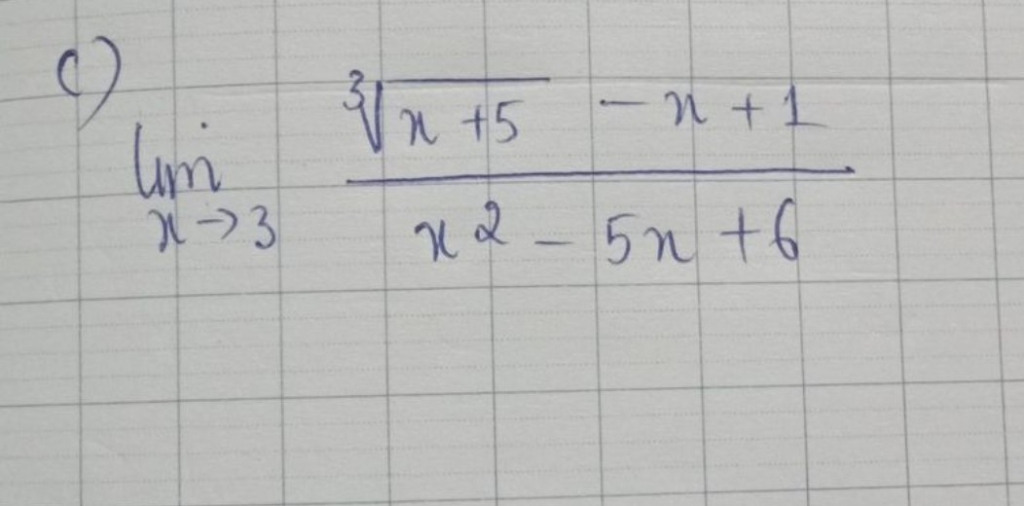 c)
lim x→3 (∛(x+5) - x + 1) / (x² - 5x + 6)